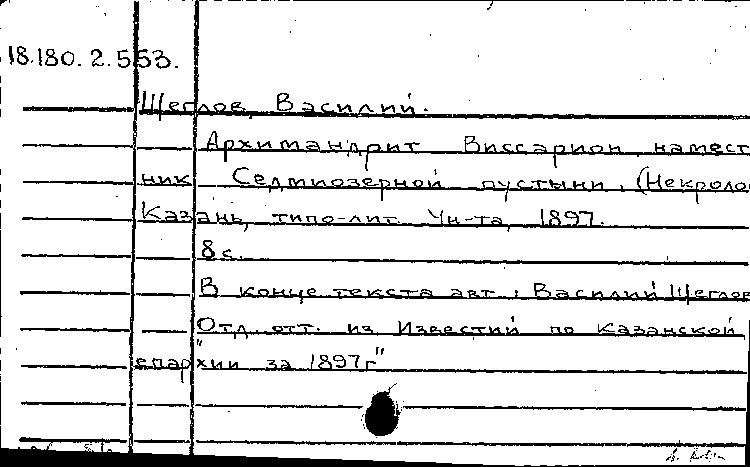 18.180.2.553.
Щеглов, Василий.
Архимандрит Виссарион, намест
ник Седмиозерной пустыни. (Некроло
Казань, типо-лит. Ун-та, 1897.
8 с.
В конце текста авт.: Василий Щеглов
Отд. отт. из "Известий по Казанской
епархии за 1897г"